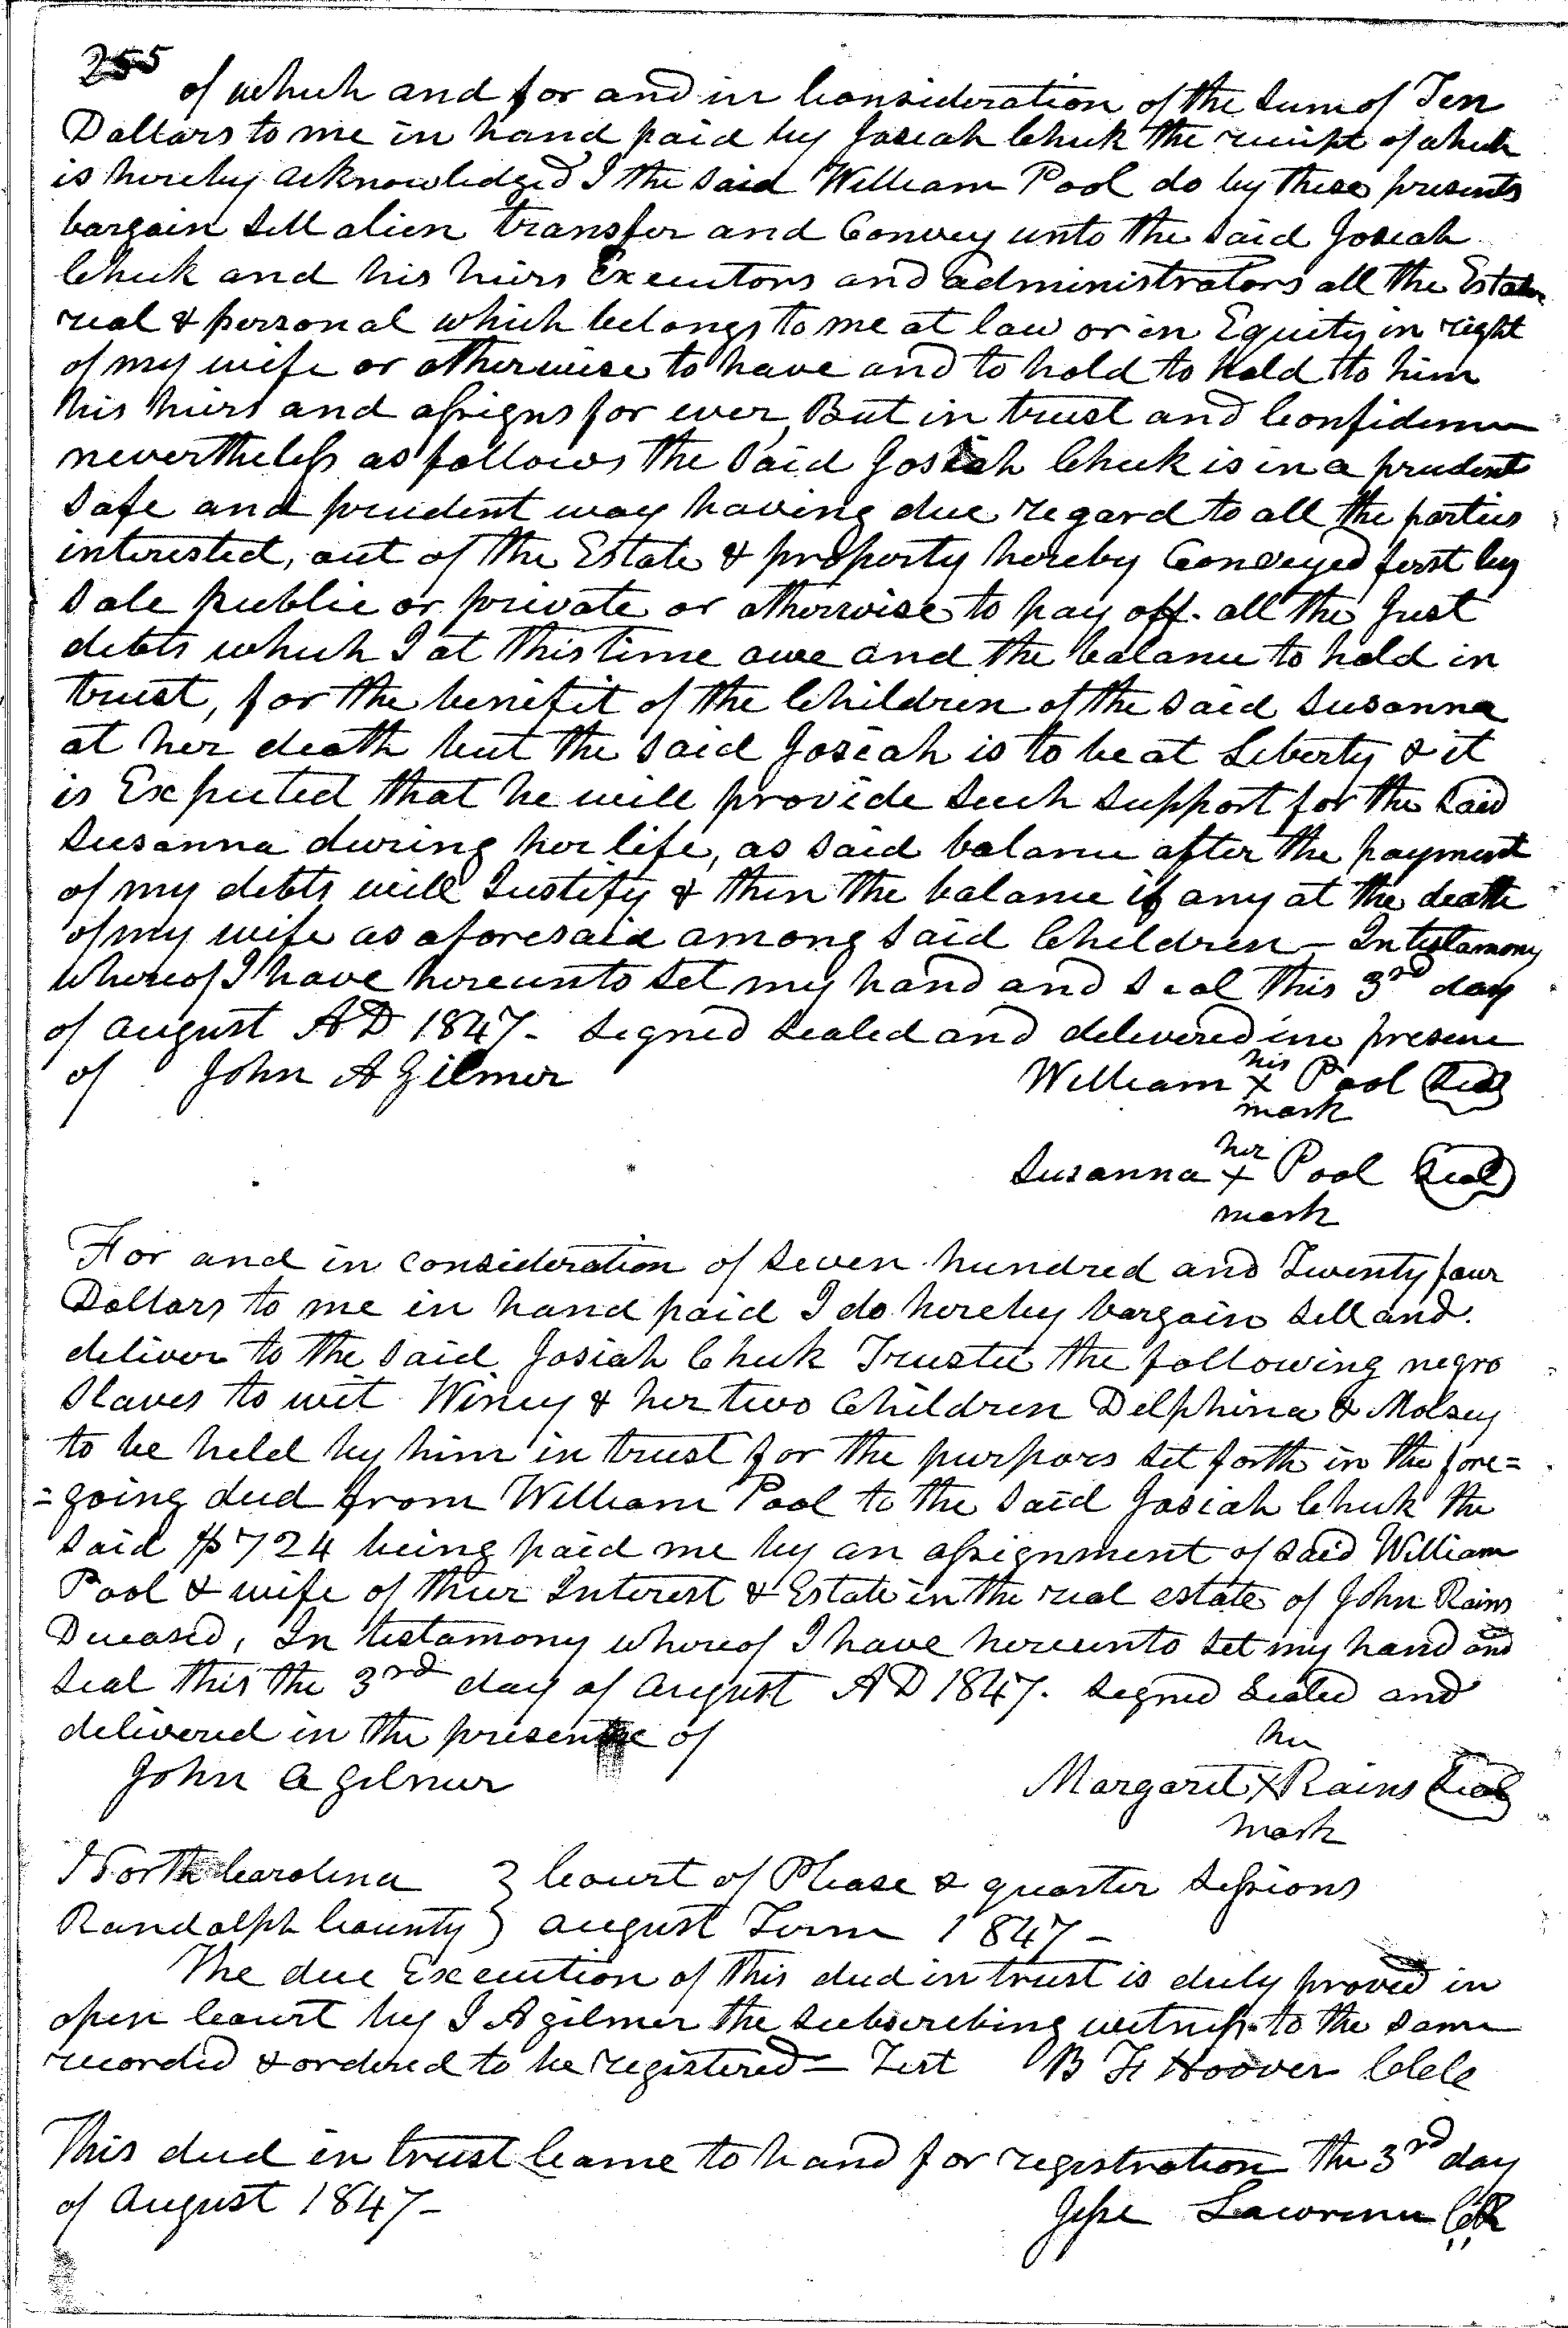 255
of which and for and in Consideration of the Sum of Ten
Dollars to me in hand paid by Josiah Cheek the receipt of which
is hereby acknowledged I the said William Pool do by these presents
bargain Sell alien transfer and Convey unto the said Josiah
Cheek and his heirs Executors and administrators all the Estate
real & personal which belongs to me at law or in Equity in right
of my wife or otherwise to have and to hold to hold to him
his heirs and assigns for ever But in trust and Confidence
nevertheless as follows the said Josiah Cheek is in a prudent
Safe and prudent way having due regard to all the parties
interested, out of the Estate & property hereby Conveyed first by
Sale public or private or otherwise to pay off. all the Just
debts which I at this time owe and the balance to hold in
trust, for the benefit of the Children of the said Susanna
at her death but the said Josiah is to be at Liberty & it
is Expected that he will provide Such Support for the Said
Susanna during her life, as said balance after the payment
of my debts will Justify & then the balance if any at the death
of my wife as aforesaid among said Children - In testamony
whereof I have hereunto Set my hand and Seal this 3rd day
of August AD 1847 - Signed Sealed and delivered in presence
of John A Gilmer William his X mark Pool Seal
Susanna her X mark Pool Seal
For and in consideration of Seven hundred and Twenty four
Dollars to me in hand paid I do hereby bargain Sell and
deliver to the said Josiah Cheek Trustee the following negro
Slaves to wit Winey & her two Children Delphina & Molsey
to be held by him in trust for the purpors set forth in the fore=
=going deed from William Pool to the said Josiah Cheek the
said $724 being paid me by an assignment of said William
Pool & wife of their Interest & Estate in the real estate of John Rains
Deceased, In testamony whereof I have hereunto set my hand and
Seal this the 3rd day of August AD 1847. Signed Sealed and
delivered in the presentce of
John A Gilmer Margaret her X mark Rains Seal
North Carolina } Court of Please & quarter Sessions
Randolph County } August Term 1847 -
The due Execution of this deed in trust is duly proved in
open Court by J A Gilmer the Subscribing witness to the same
recorded & ordered to be registered - Test B F Hoover Clk
This deed in trust Came to hand for registration the 3rd day
of August 1847 -
Jesse Lawrence